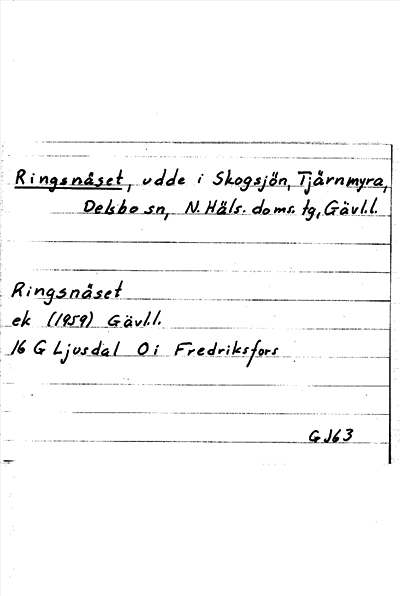 Ringsnäset, udde i Skogsjön, Tjärnmyra,
Delsbo sn, N. Häls. doms. tg, Gävl.l.
Ringsnäset
ek (1959) Gävl.l.
16 G Ljusdal 0 i Fredriksfors
GJ63